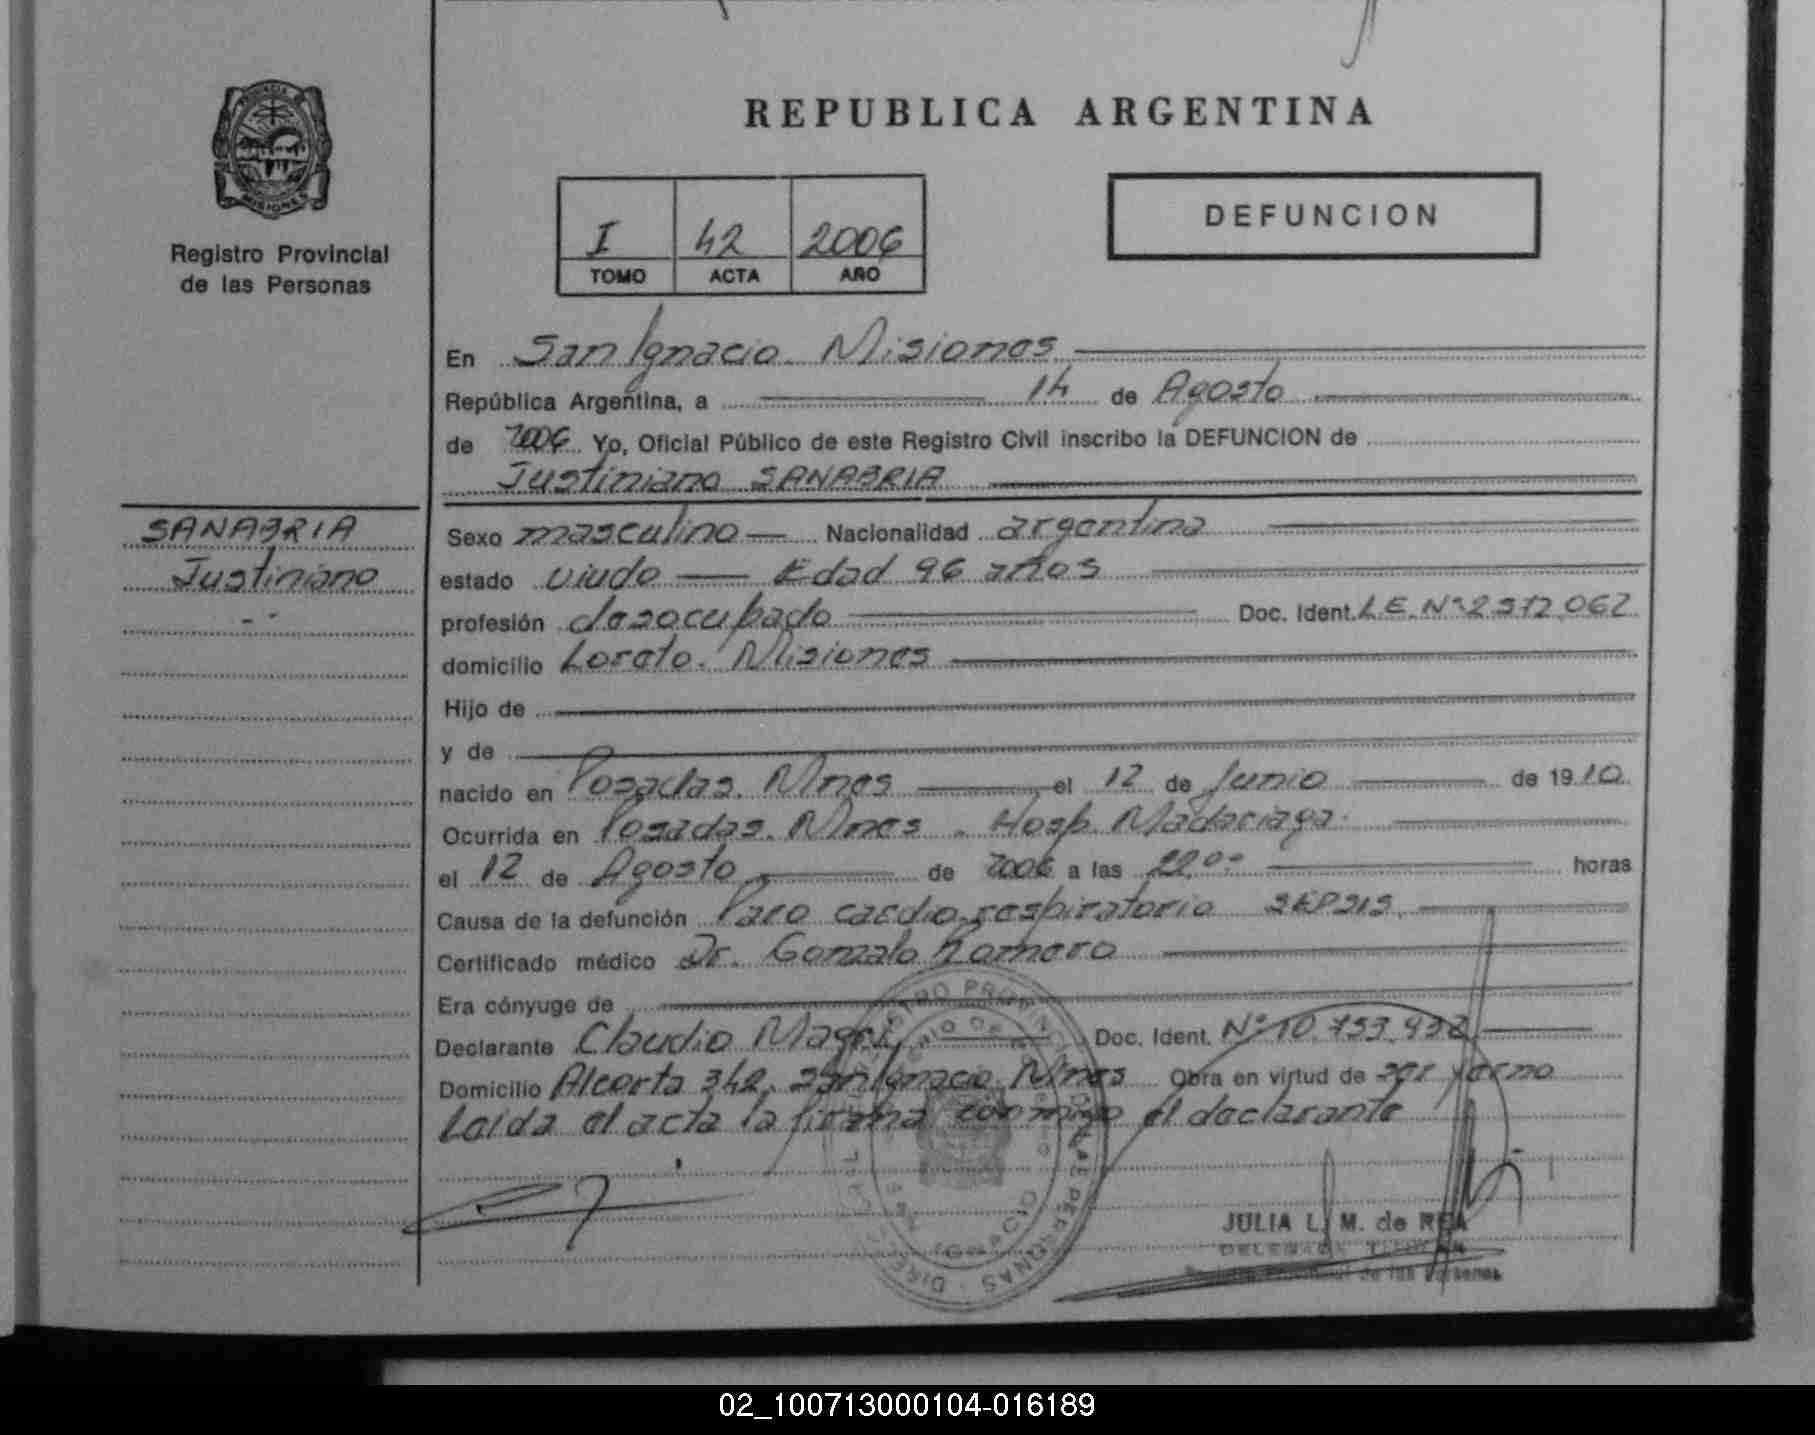 PROVINCIA DE
MISIONES
Registro Provincial
de las Personas
REPUBLICA ARGENTINA
I 42 2006
TOMO ACTA AÑO
DEFUNCION
En San Ignacio. Misiones
República Argentina, a 14 de Agosto
de 2006 Yo, Oficial Público de este Registro Civil inscribo la DEFUNCION de
Justiniano SANABRIA
SANABRIA
Justiniano
Sexo masculino Nacionalidad argentina
estado viudo Edad 96 años
profesión desocupado Doc. Ident. L.E. Nº 2.572.062
domicilio Loreto. Misiones
Hijo de
y de
nacido en Posadas. Mnes el 12 de Junio de 1910
Ocurrida en Posadas. Mnes. Hosp. Madariaga.
el 12 de Agosto de 2006 a las 22.00 horas
Causa de la defunción Paro cardio-respiratorio SEPSIS.
Certificado médico Dr. Gonzalo Romero
Era cónyuge de
Declarante Claudio Doc. Ident. Nº 10.753.952
Domicilio Alcorta 342. San Ignacio. Mnes Obra en virtud de ser yerno
Leida el acta la firma conmigo el declarante
JULIA L. M. de REA
DELEGADA TITULAR
Registro Provincial de las Personas
02_100713000104-016189